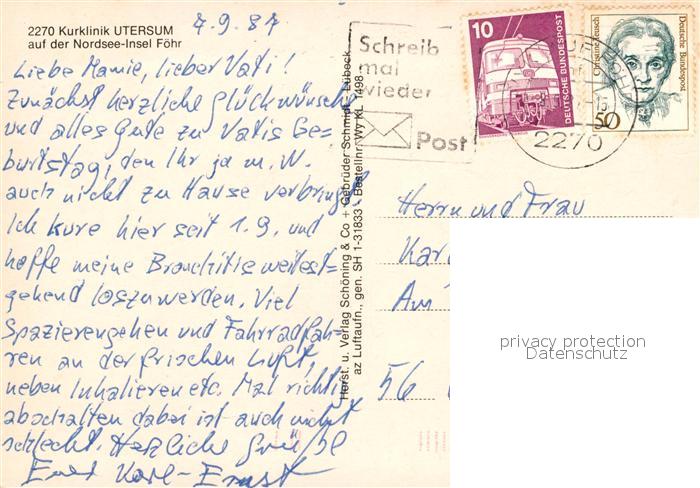 2270 Kurklinik UTERSUM
auf der Nordsee-Insel Föhr
7.9.87
Liebe Mamie, lieber Vati!
Zunächst herzliche Glückwünsche
und alles Gute zu Vatis Ge-
burtstag, den Ihr ja m. W.
auch nicht zu Hause verbringt.
Ich kure hier seit 1.9. und
hoffe meine Bronchitis weitest-
gehend loszuwerden. Viel
Spazierengehen und Fahrradfah-
ren an der frischen Luft,
neben Inhalieren etc. Mal richtig
abschalten dabei ist auch nicht
schlecht. Herzliche Grüße
Euer Karl-Ernst
Herst. u. Verlag Schöning & Co + Gebrüder Schmidt, Lübeck
az Luftaufn., gen. SH 1-31833 - Bestellnr. Wy KL 1498
Schreib
mal
wieder
Post
10
DEUTSCHE BUNDESPOST
Christine Teusch
Deutsche Bundespost
50
2270
Herrn und Frau
Kar
Am
56
privacy protection
Datenschutz